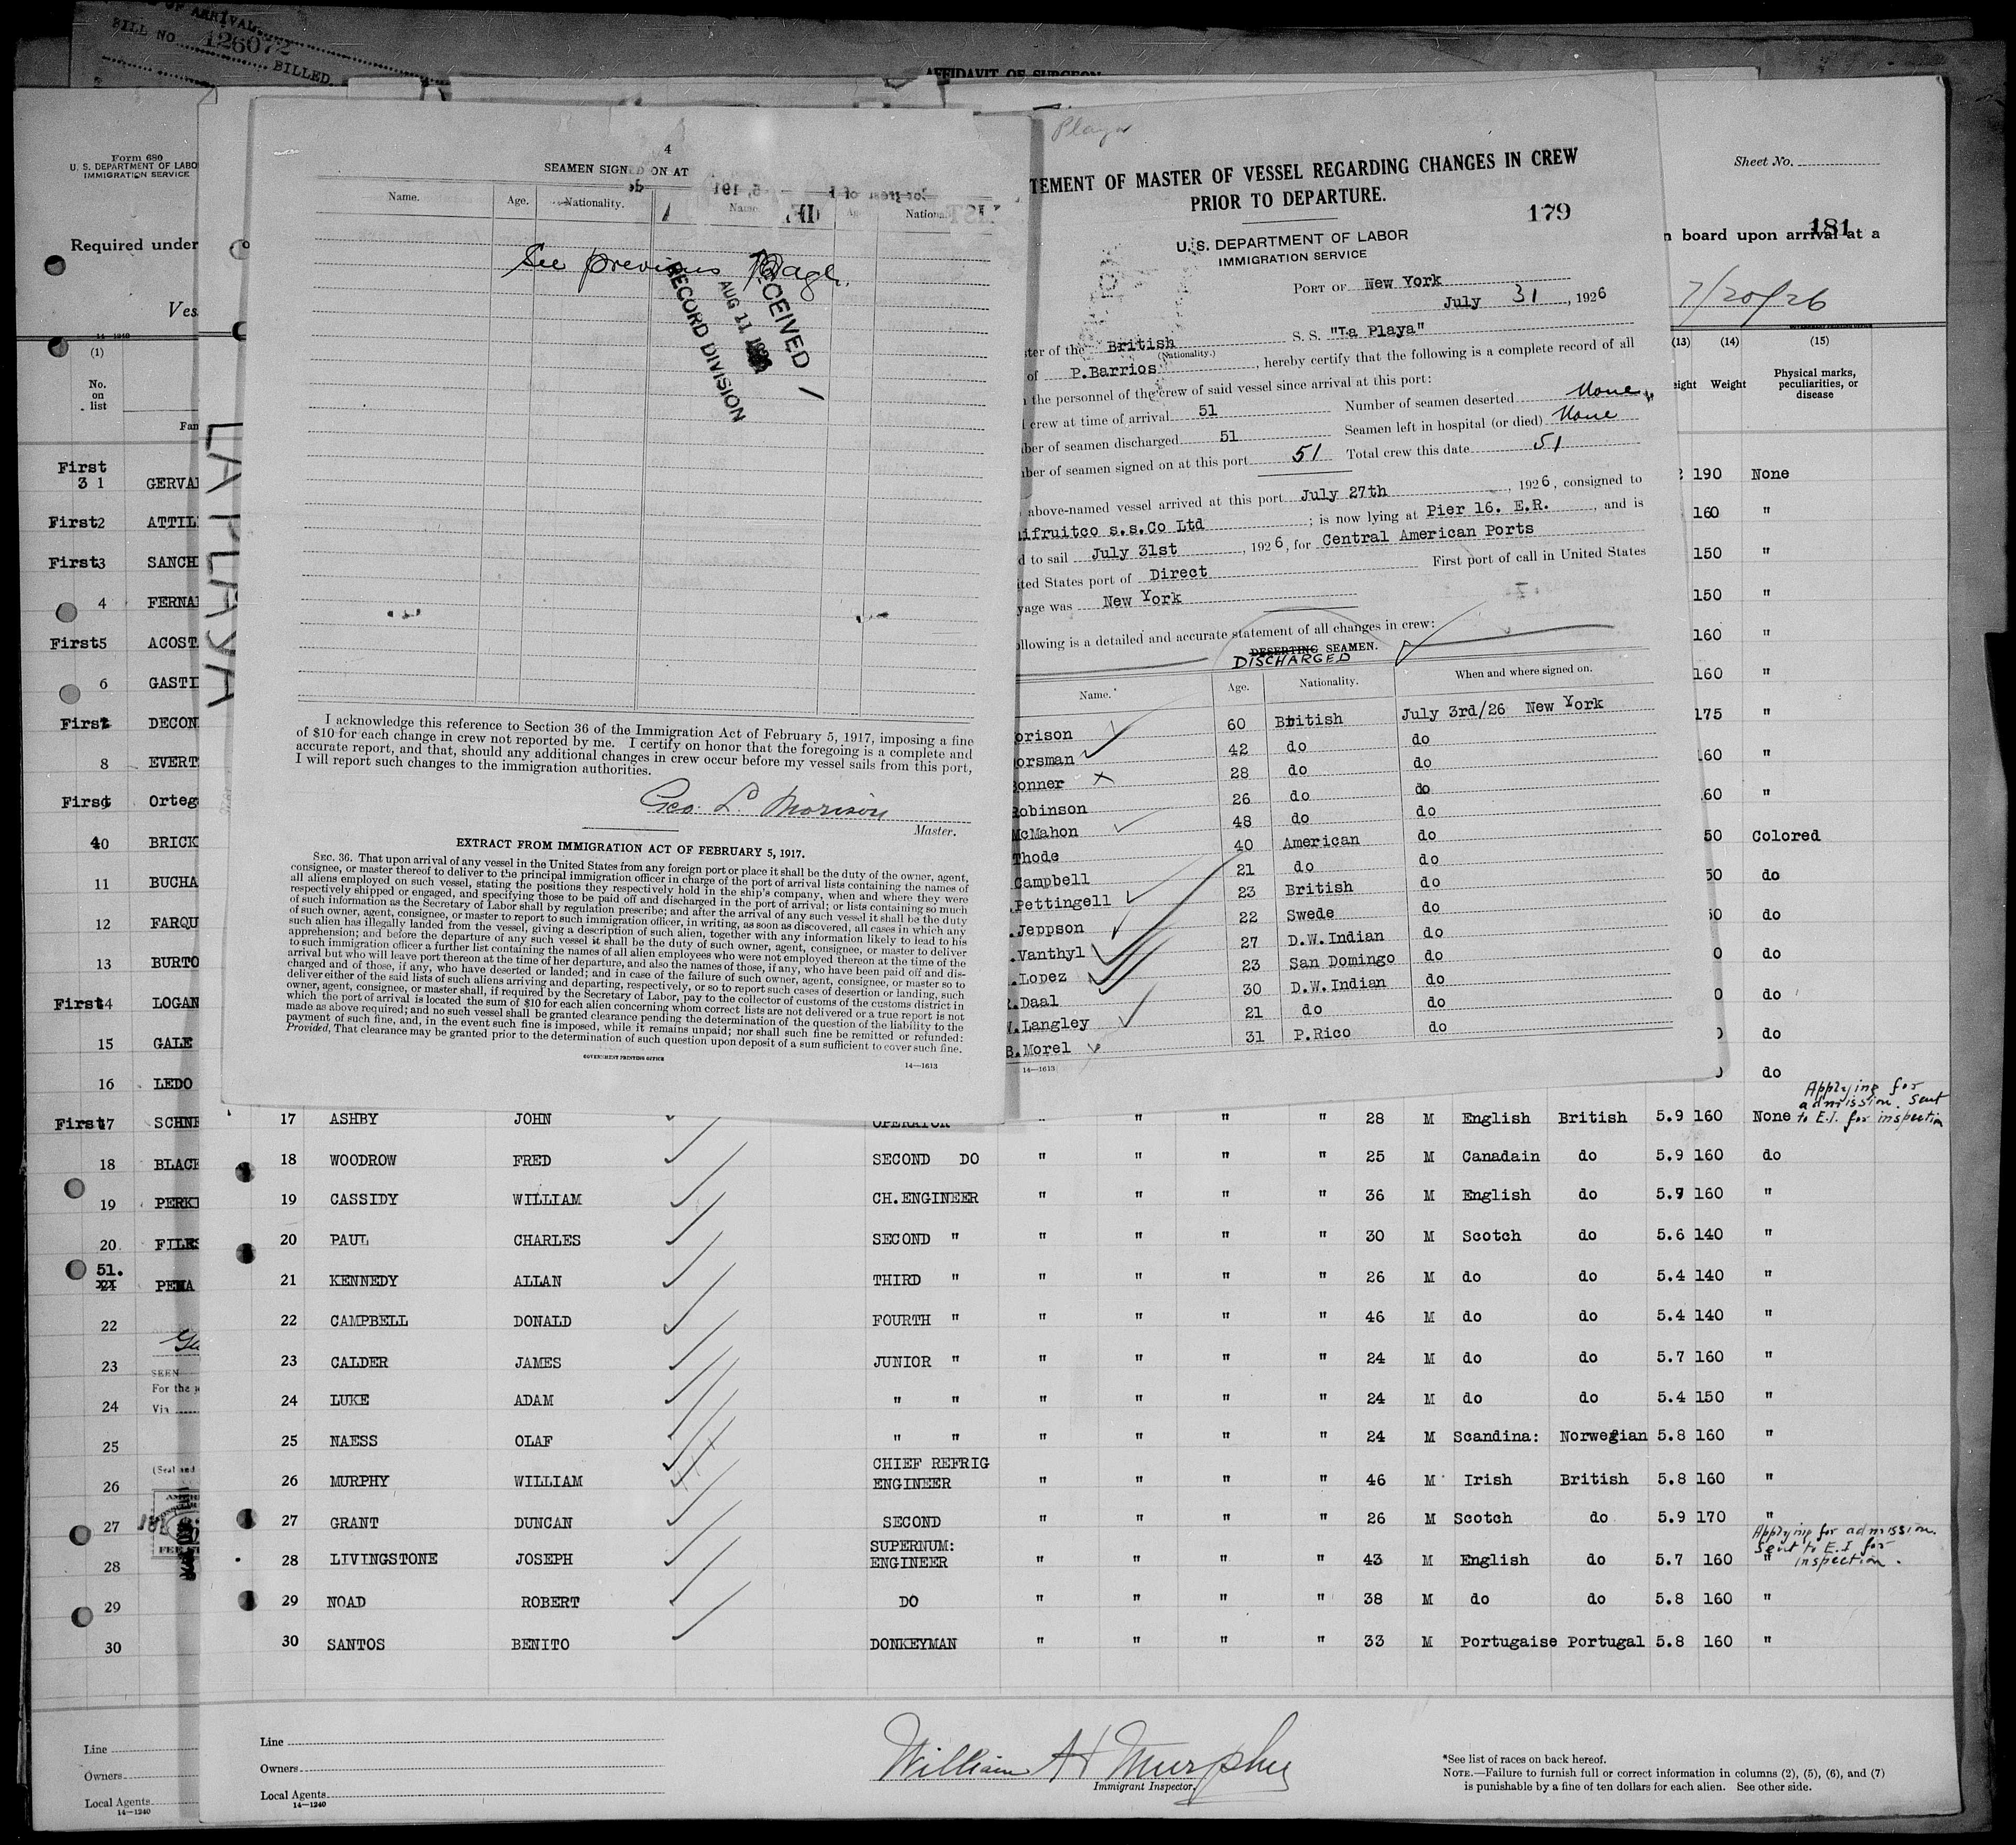 OF ARRIVAL
BILL NO. 126072
BILLED
AFFIDAVIT OF SURGEON
Form 680
U. S. DEPARTMENT OF LABO
IMMIGRATION SERVICE
Required under
Ves
14—1240
(1)
No.
on
list
Fam
First
3 1 GERVA
First2 ATTIL
First3 SANCH
4 FERNA
First5 ACOST
6 GASTI
First DECON
8 EVERT
First Orteg
40 BRICK
11 BUCHA
12 FARQU
13 BURTO
First4 LOGAN
15 GALE
16 LEDO
First7 SCHNE
18 BLACK
19 PERKI
20 FILES
51.
21 PENA
22
23 SEEN
For the
24 Via
25
26 (Seal and
27
28
29
30
Line
Owners
Local Agents
14—1240
LA PLAYA
4
SEAMEN SIGNED ON AT
Name. Age. Nationality. Name. Age. National
See previous Page.
RECEIVED
AUG 11 1926
RECORD DIVISION
I acknowledge this reference to Section 36 of the Immigration Act of February 5, 1917, imposing a fine
of $10 for each change in crew not reported by me. I certify on honor that the foregoing is a complete and
accurate report, and that, should any additional changes in crew occur before my vessel sails from this port,
I will report such changes to the immigration authorities.
Geo. L. Morison
Master.
EXTRACT FROM IMMIGRATION ACT OF FEBRUARY 5, 1917.
SEC. 36. That upon arrival of any vessel in the United States from any foreign port or place it shall be the duty of the owner, agent,
consignee, or master thereof to deliver to the principal immigration officer in charge of the port of arrival lists containing the names of
all aliens employed on such vessel, stating the positions they respectively hold in the ship's company, when and where they were
respectively shipped or engaged, and specifying those to be paid off and discharged in the port of arrival; or lists containing so much
of such information as the Secretary of Labor shall by regulation prescribe; and after the arrival of any such vessel it shall be the duty
of such owner, agent, consignee, or master to report to such immigration officer, in writing, as soon as discovered, all cases in which any
such alien has illegally landed from the vessel, giving a description of such alien, together with any information likely to lead to his
apprehension; and before the departure of any such vessel it shall be the duty of such owner, agent, consignee, or master to deliver
to such immigration officer a further list containing the names of all alien employees who were not employed thereon at the time of the
arrival but who will leave port thereon at the time of her departure, and also the names of those, if any, who have been paid off and dis-
charged and of those, if any, who have deserted or landed; and in case of the failure of such owner, agent, consignee, or master so to
deliver either of the said lists of such aliens arriving and departing, respectively, or so to report such cases of desertion or landing, such
owner, agent, consignee, or master shall, if required by the Secretary of Labor, pay to the collector of customs of the customs district in
which the port of arrival is located the sum of $10 for each alien concerning whom correct lists are not delivered or a true report is not
made as above required; and no such vessel shall be granted clearance pending the determination of the question of the liability to the
payment of such fine, and, in the event such fine is imposed, while it remains unpaid; nor shall such fine be remitted or refunded:
Provided, That clearance may be granted prior to the determination of such question upon deposit of a sum sufficient to cover such fine.
GOVERNMENT PRINTING OFFICE
14—1613
Playa
TEMENT OF MASTER OF VESSEL REGARDING CHANGES IN CREW
PRIOR TO DEPARTURE.
179
U. S. DEPARTMENT OF LABOR
IMMIGRATION SERVICE
PORT OF New York
July 31, 1926
ster of the British S. S. "La Playa"
(Nationality.)
of P.Barrios, hereby certify that the following is a complete record of all
the personnel of the crew of said vessel since arrival at this port:
crew at time of arrival 51 Number of seamen deserted None
ber of seamen discharged 51 Seamen left in hospital (or died) None
ber of seamen signed on at this port 51 Total crew this date 51
above-named vessel arrived at this port July 27th, 1926, consigned to
ifruitco s.s.Co Ltd; is now lying at Pier 16. E.R., and is
d to sail July 31st, 1926, for Central American Ports
ited States port of Direct First port of call in United States
yage was New York
ollowing is a detailed and accurate statement of all changes in crew:
DESERTING SEAMEN.
DISCHARGED
Name. Age. Nationality. When and where signed on.
orison 60 British July 3rd/26 New York
orsman 42 do do
onner 28 do do
Robinson 26 do do
McMahon 48 do do
Thode 40 American do
Campbell 21 do do
.Pettingell 23 British do
.Jeppson 22 Swede do
.Vanthyl 27 D.W.Indian do
.Lopez 23 San Domingo do
.Daal 30 D.W.Indian do
.Langley 21 do do
B.Morel 31 P.Rico do
14—1613
Sheet No.
181
n board upon arrival at a
7/20/26
(13) (14) (15)
eight Weight Physical marks,
peculiarities, or
disease
190 None
160 "
150 "
150 "
160 "
160 "
175 "
60 "
60 "
50 Colored
50 do
50 do
0 do
0 do
do
do
Applying for
admission. Sent
to E.I. for inspection
17 ASHBY JOHN OPERATOR " " " " 28 M English British 5.9 160 None
18 WOODROW FRED SECOND DO " " " " 25 M Canadain do 5.9 160 do
19 CASSIDY WILLIAM CH.ENGINEER " " " " 36 M English do 5.9 160 "
20 PAUL CHARLES SECOND " " " " " 30 M Scotch do 5.6 140 "
21 KENNEDY ALLAN THIRD " " " " " 26 M do do 5.4 140 "
22 CAMPBELL DONALD FOURTH " " " " " 46 M do do 5.4 140 "
23 CALDER JAMES JUNIOR " " " " " 24 M do do 5.7 160 "
24 LUKE ADAM " " " " " " 24 M do do 5.4 150 "
25 NAESS OLAF " " " " " " 24 M Scandina: Norwegian 5.8 160 "
26 MURPHY WILLIAM CHIEF REFRIG
ENGINEER " " " " 46 M Irish British 5.8 160 "
27 GRANT DUNCAN SECOND " " " " 26 M Scotch do 5.9 170 "
Applying for admission.
Sent to E.I for
inspection.
28 LIVINGSTONE JOSEPH SUPERNUM:
ENGINEER " " " " 43 M English do 5.7 160 "
29 NOAD ROBERT DO " " " " 38 M do do 5.8 160 "
30 SANTOS BENITO DONKEYMAN " " " " 33 M Portugaise Portugal 5.8 160 "
Line
Owners
Local Agents
14—1240
William H Murphy
Immigrant Inspector.
*See list of races on back hereof.
NOTE.—Failure to furnish full or correct information in columns (2), (5), (6), and (7)
is punishable by a fine of ten dollars for each alien. See other side.